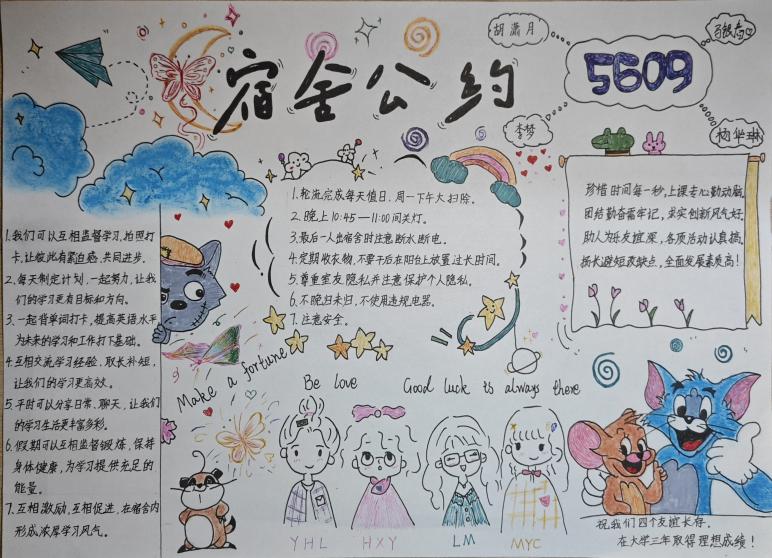 宿舍公约
胡潇月
5609
李梦
1.轮流完成每天值日、周一下午大扫除。
2.晚上10:45—11:00间关灯。
3.最后一人出宿舍时注意断水断电。
4.定期收衣物,不要于后在阳台上放置过长时间。
5.尊重室友隐私并注意保护个人隐私。
6.不晚归未归,不使用违规电器。
7.注意安全。
珍惜时间每一秒,上课专心勤动脑。
团结勤奋需牢记,求实创新风气好,
助人为乐友谊深,各项活动认真搞,
扬长避短改缺点,全面发展素质高!
1.我们可以互相监督学习,拍照打
卡,让彼此有紧迫感,共同进步。
2.每天制定计划,一起努力,让我
们的学习更有目标和方向。
3.一起背单词打卡,提高英语水平
为未来的学习和工作打下基础。
4.互相交流学习经验、取长补短,
让我们的学习更高效。
5.平时可以分享日常、聊天,让我们
的学习生活更丰富多彩。
6.假期可以互相监督锻炼,保持
身体健康,为学习提供充足的
能量。
7.互相激励,互相促进,在宿舍内
形成浓厚学习风气。
Make a fortune
Be love
Good luck is always there
YHL
HXY
LM
MYC
祝我们四个友谊长存,
在大学三年取得理想成绩!